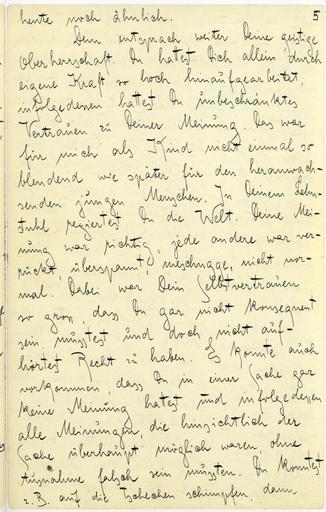 5
heute noch ähnlich.
Dem entsprach weiter Deine geistige
Oberherrschaft. Du hattest Dich allein durch
eigene Kraft so hoch hinaufgearbeitet,
infolgedessen hattest Du unbeschränktes
Vertrauen zu Deiner Meinung. Das war
für mich als Kind nicht einmal so
blendend wie später für den heranwach-
senden jungen Menschen. In Deinem Lehn-
stuhl regiertest Du die Welt. Deine Mei-
nung war richtig, jede andere war ver-
rückt, überspannt, meschugge, nicht nor-
mal. Dabei war Dein Selbstvertrauen
so gross, dass Du gar nicht konsequent
sein musstest und doch nicht auf-
hörtest Recht zu haben. Es konnte auch
vorkommen, dass Du in einer Sache gar
keine Meinung hattest und infolgedessen
alle Meinungen, die hinsichtlich der
Sache überhaupt möglich waren, ohne
Ausnahme falsch sein mussten. Du konntest
z. B. auf die Tschechen schimpfen, dann